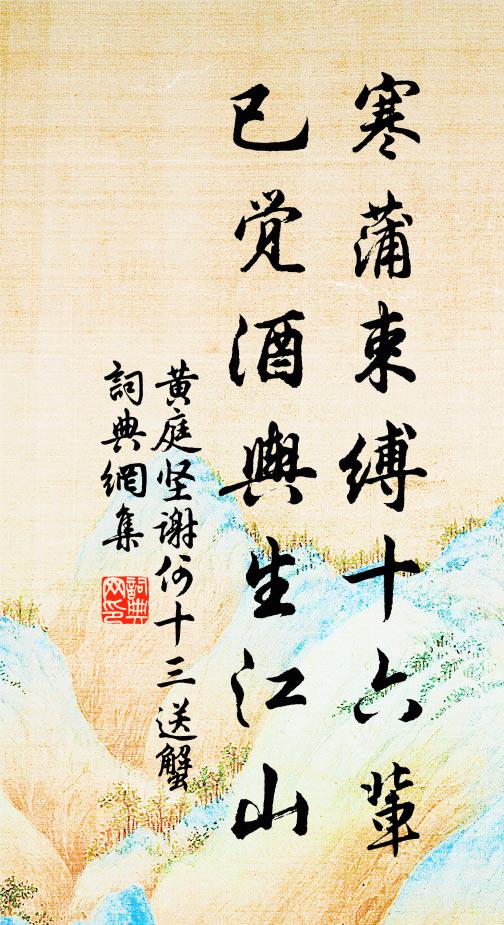 寒蒲束缚十六辈
已觉酒舆生江山
黄庭坚谢何十三送蟹
词典網集
詞典網印